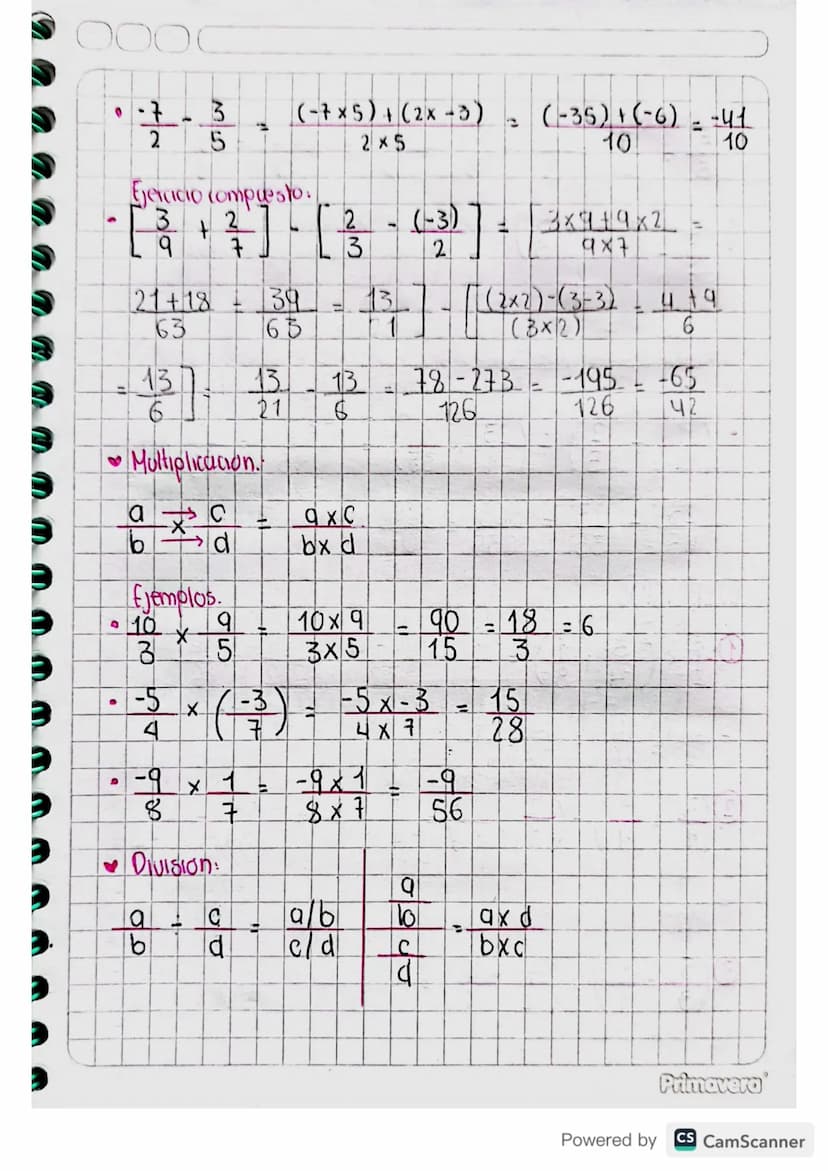 • -7/2 - 3/5 = (-7x5)+(2x-3)/2x5 = (-35)+(-6)/10 = -41/10
Ejercicio compuesto:
- [3/9 + 2/7] - [2/3 - (-3)/2] = [3x9+9x2/9x7 =
21+18/63 = 39/63 = 13/ 1] - [(2x2)-(3-3)/(3x2) = 4+9/6
= 13/6] = 13/21 - 13/6 = 78-273/126 = -195/126 = -65/42
♥ Multiplicación:
a/b x c/d = axc/bxd
Ejemplos.
• 10/3 x 9/5 = 10x9/3x5 = 90/15 = 18/3 = 6
• -5/4 x (-3/7) = -5x-3/4x7 = 15/28
• -9/8 x 1/7 = -9x1/8x7 = -9/56
♥ División:
a/b ÷ c/d = a/b/c/d | a/b/c/d = axd/bxc
Primavera
Powered by CS CamScanner